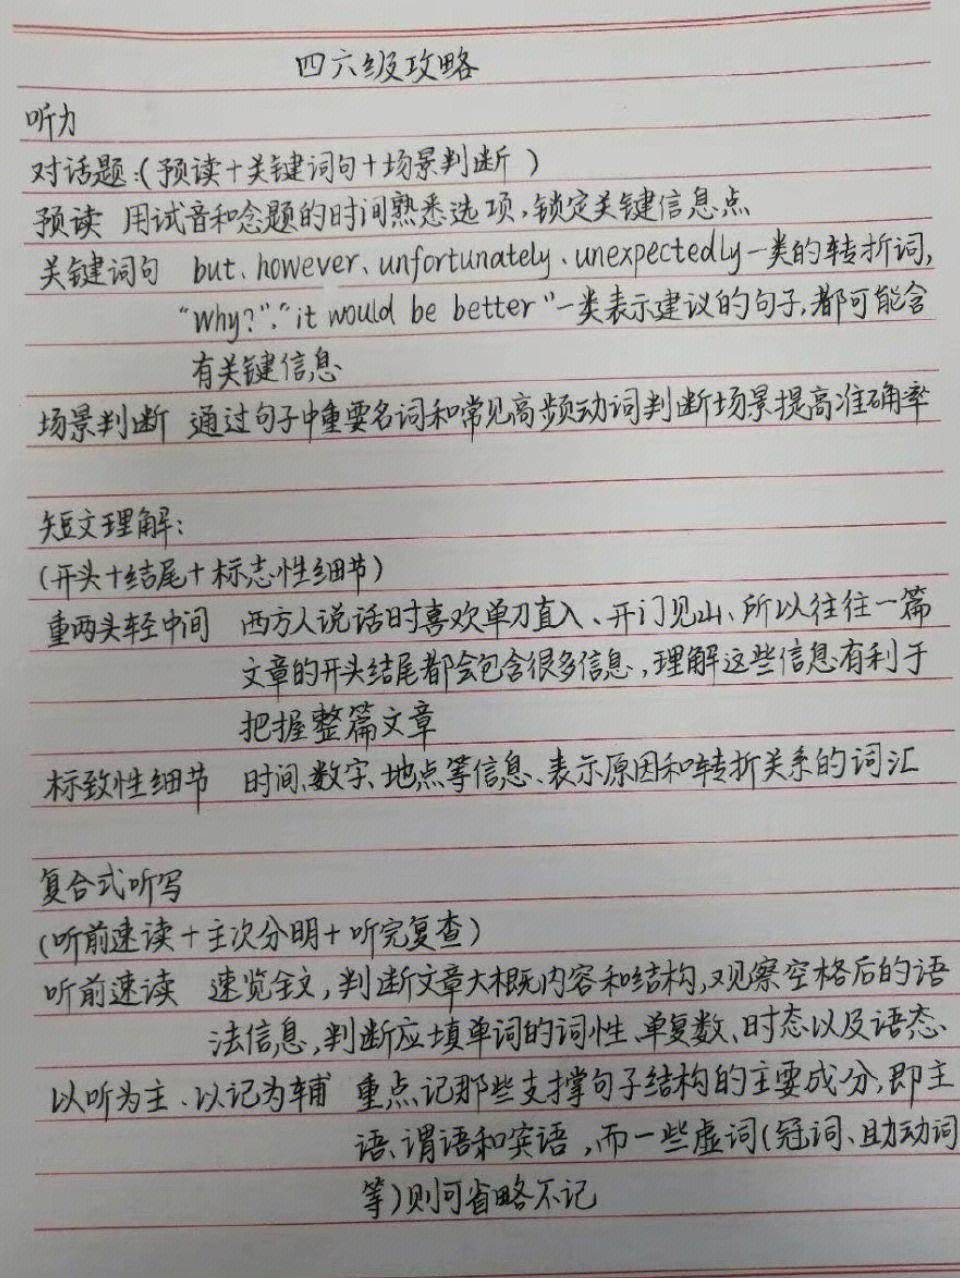 四六级攻略
听力
对话题:(预读+关键词句+场景判断)
预读 用试音和念题的时间熟悉选项,锁定关键信息点
关键词句 but、however、unfortunately、unexpectedly一类的转折词,
"Why?"、"it would be better"一类表示建议的句子,都可能含
有关键信息
场景判断 通过句子中重要名词和常见高频动词判断场景提高准确率
短文理解:
(开头+结尾+标志性细节)
重两头轻中间 西方人说话时喜欢单刀直入、开门见山、所以往往一篇
文章的开头结尾都会包含很多信息,理解这些信息有利于
把握整篇文章
标致性细节 时间、数字、地点等信息、表示原因和转折关系的词汇
复合式听写
(听前速读+主次分明+听完复查)
听前速读 速览全文,判断文章大概内容和结构,观察空格后的语
法信息,判断应填单词的词性、单复数、时态以及语态、
以听为主、以记为辅 重点记那些支撑句子结构的主要成分,即主
语、谓语和宾语,而一些虚词(冠词、助动词
等)则可省略不记